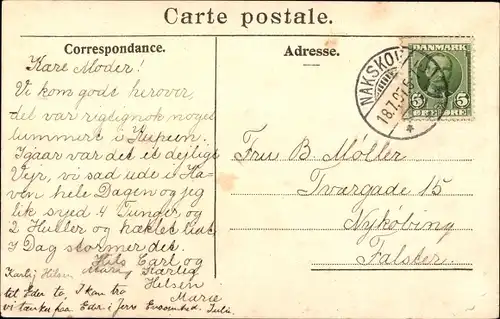 Carte postale.
Correspondance.
Adresse.
DANMARK
5 5
ØRE ØRE
NAKSKOV
18.7.07
Kære Moder!
Vi kom godt herover,
det var rigtignok noget
lummert i Kupeen.
Igaar var det et dejligt
Vejr, vi sad ude i Ha-
ven hele Dagen og jeg
fik syed 4 Tunger og
2 Huller og hæklet lidt
i Dag stormer det.
Hils Carl og
Marie
Kærlig Hilsen
Kærlig
Hilsen
Marie
til Eder to, I kan tro
vi tænker paa Eder i Jeres Ensomhed.
Fru B. Møller
Tværgade 15
Nykøbing
Falster.